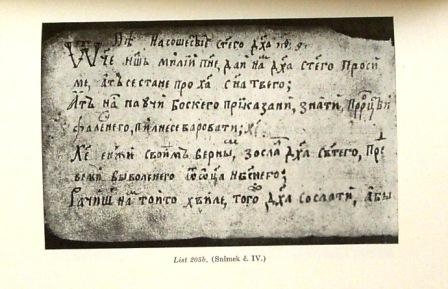 Пѣ На сошесвие стего дх҃а
Ѿче н҃шъ милій пн҃е, дай на дх҃а стего проси
ме, атъ се стане про ха сн҃а твего;
Атъ на научи Боского приказаний, знати,
фаленего, пилнесе варовати;
Хе енжи своимъ верны, зослал дх҃а св҃тего, Пре
веми выволенего ѿ оц҃а нб҃снего;
Рачишъ на тойто хвиле, того дх҃а сослати, абы
List 205b. (Snímek č. IV.)